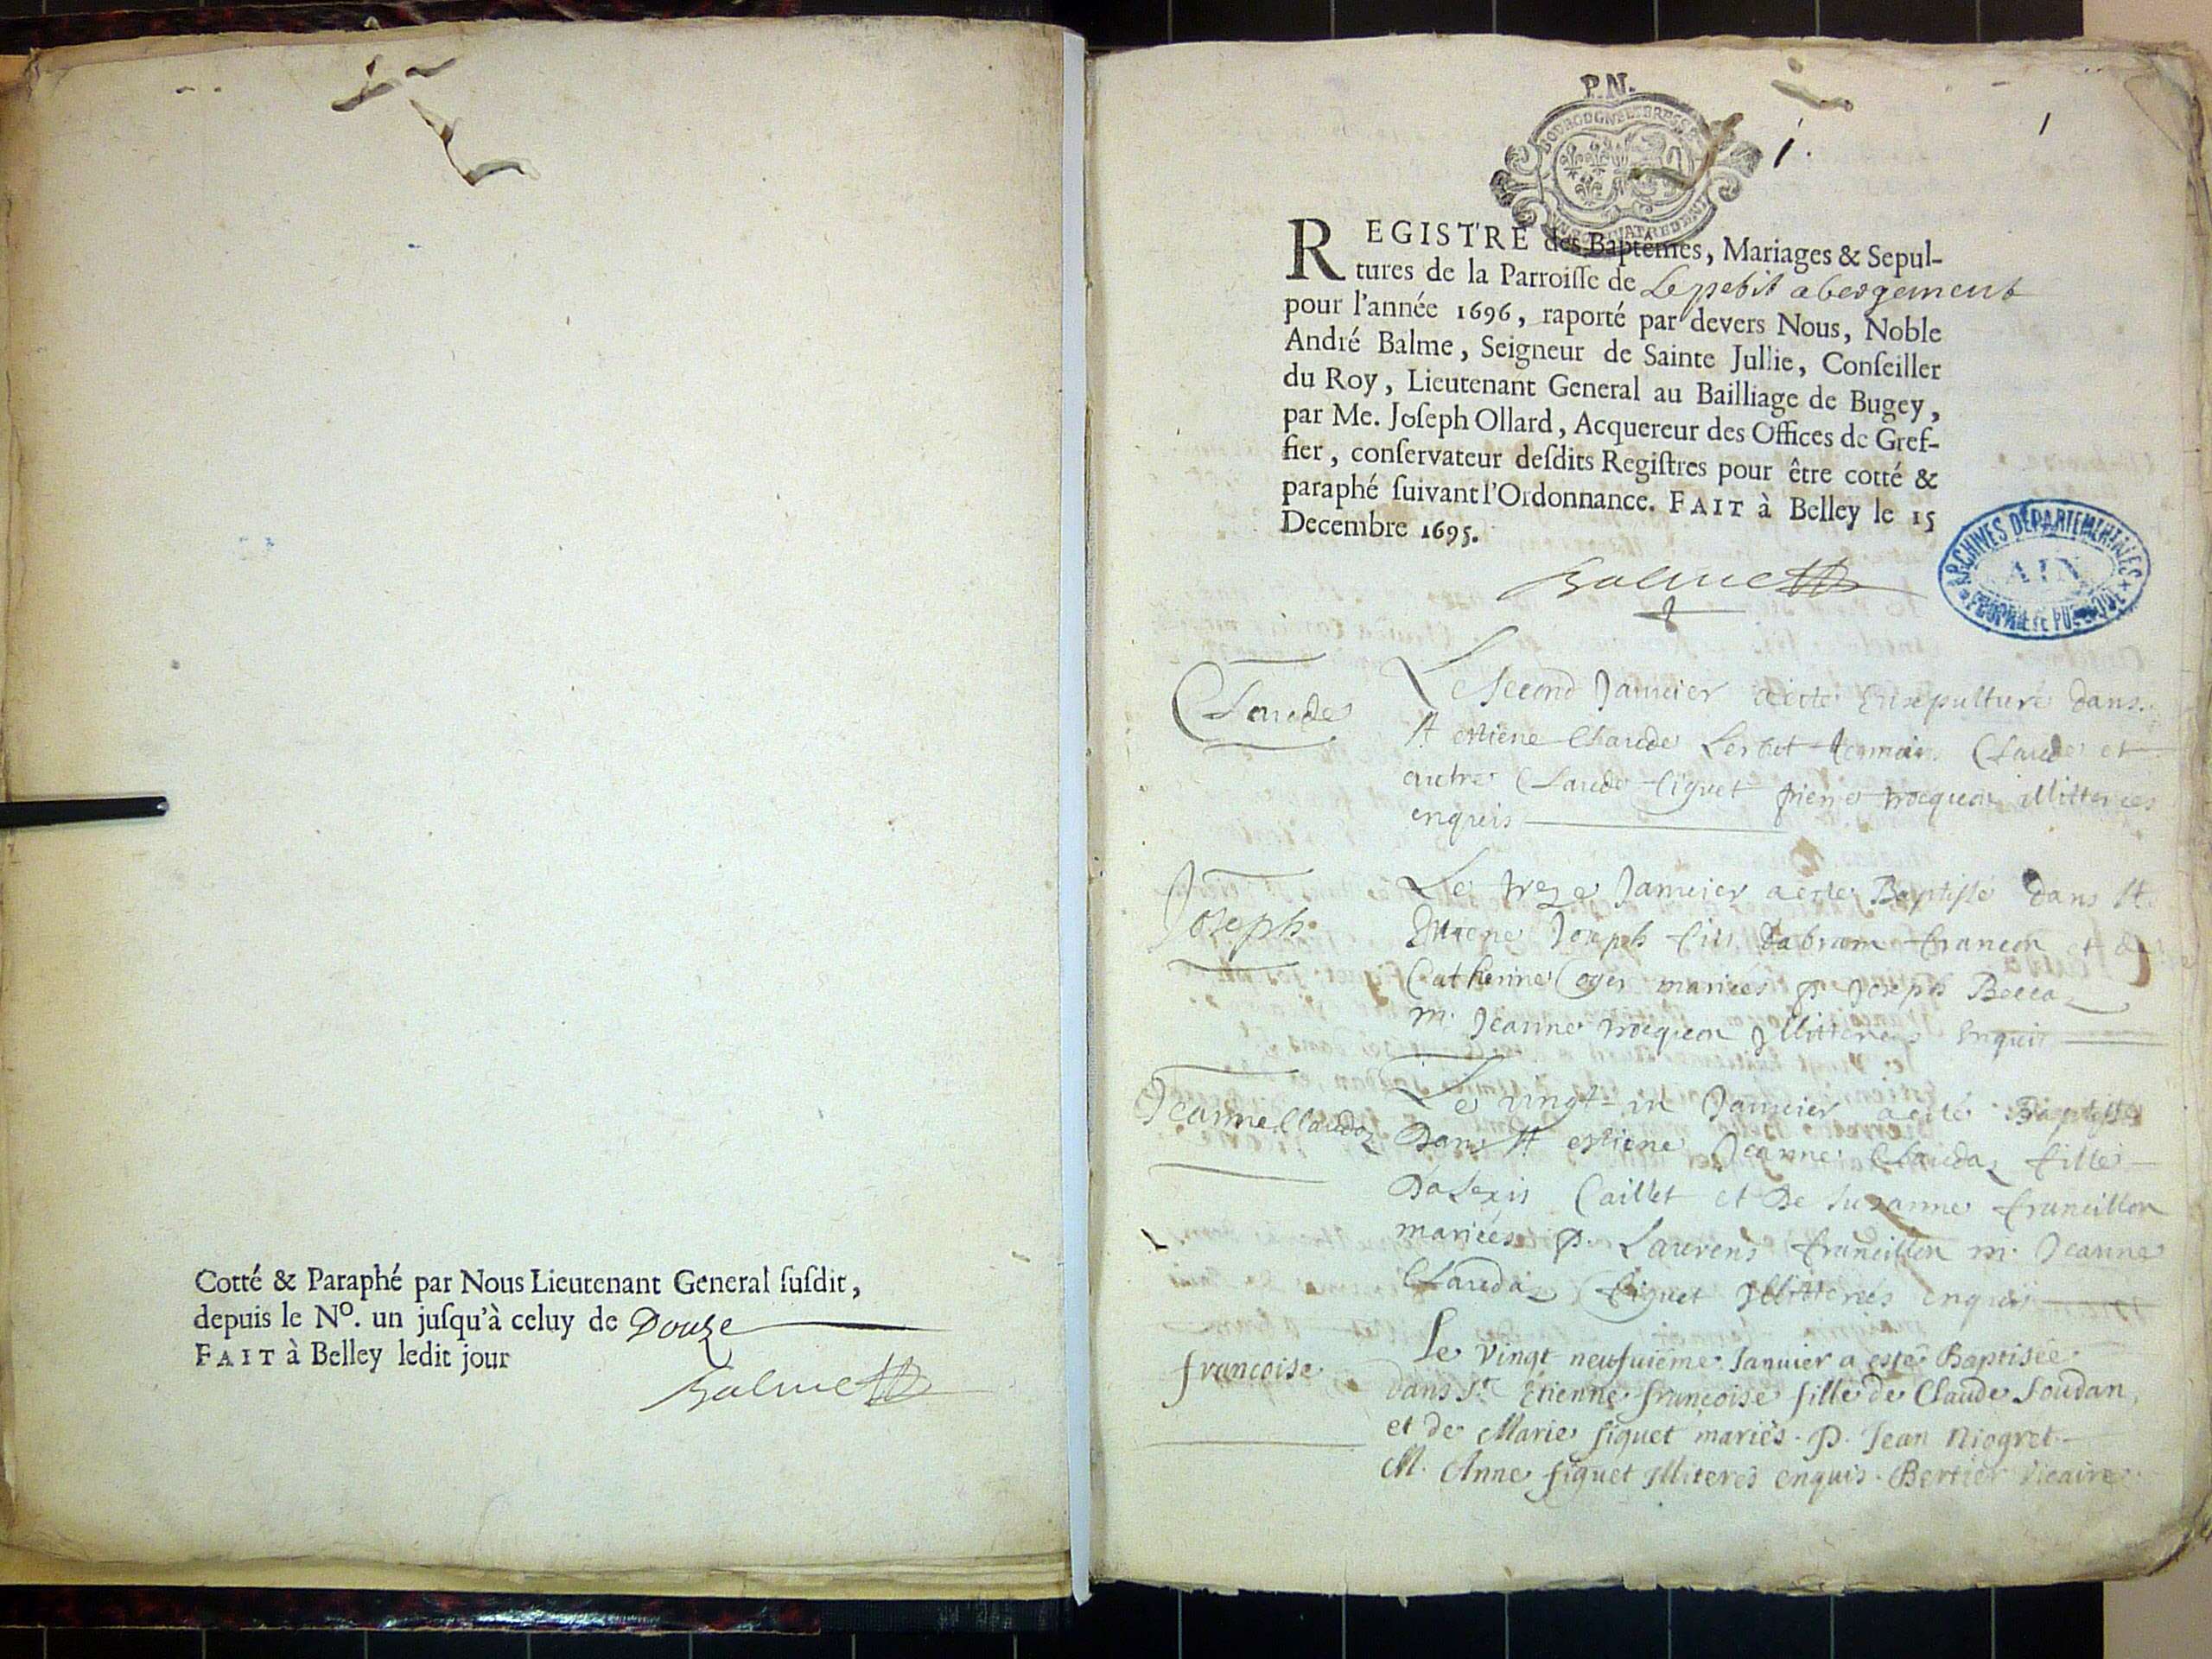 Cotté & Paraphé par Nous Lieutenant General ſuſdit,
depuis le Nº. un juſqu'à celuy de Douze
FAIT à Belley ledit jour
Balme
P.N.
1
1.
REGISTRE des Baptêmes, Mariages & Sepul-
tures de la Parroiſſe de Le petit abergement
pour l'année 1696, raporté par devers Nous, Noble
André Balme, Seigneur de Sainte Jullie, Conſeiller
du Roy, Lieutenant General au Bailliage de Bugey,
par Me. Joſeph Ollard, Acquereur des Offices de Gref-
fier, conſervateur deſdits Regiſtres pour être cotté &
paraphé ſuivant l'Ordonnance. FAIT à Belley le 15
Decembre 1695.
Balme
ARCHIVES DÉPARTEMENTALES
AIN
PROPRIÉTÉ PUBLIQUE
Claude
Le second Januier a esté Ensepulture dans
St estiene Claude Claude et
autre Claude figuet pierre illitterees
enquis
Joseph
Le treze Januier a este Baptisé dans St.
Etiene Joseph fils Dabram francon et de
Catherine mariées p Joseph
m. Jeanne Illitterees Enquis
Jeanne Claudaz
Le vingt un Januier a esté Baptisée
Dans St estiene Jeanne Claudaz fille
Dalexis Caillet et De Susanne francillon
mariées p. Laurens francillon m. Jeanne
Claudaz figuet Illitterées enquis
francoise
Le Vingt neufuiême Januier a esté Baptisée
dans St Etienne françoise fille de Claude Soudan
et de Marie figuet mariés. P. Jean Niogret
M. Anne figuet Illiterés enquis. Bertier Vicaire